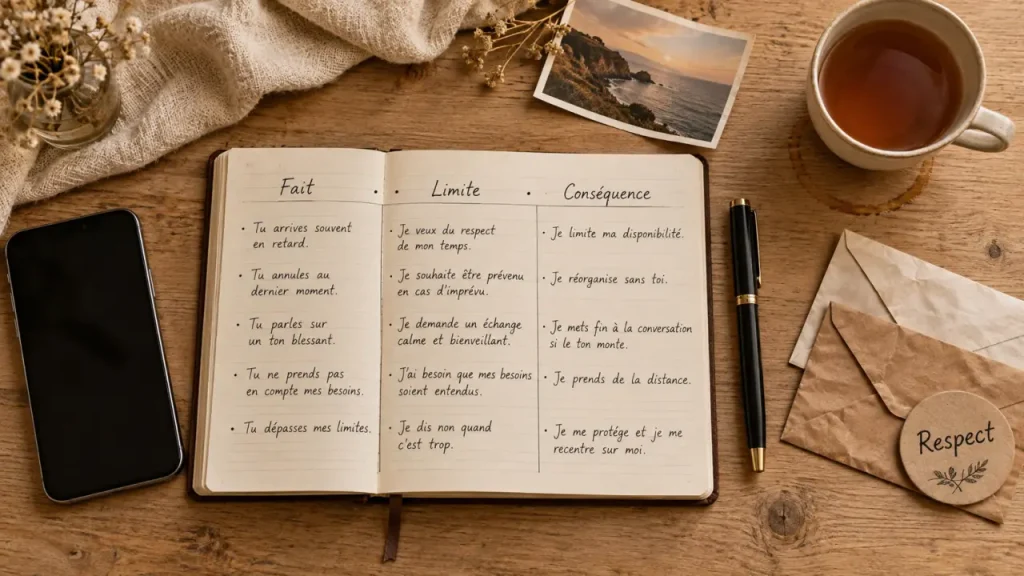 Fait • • Limite • Conséquence
• Tu arrives souvent
en retard.
• Je veux du respect
de mon temps.
• Je limite ma disponibilité.
• Tu annules au
dernier moment.
• Je souhaite être prévenu
en cas d'imprévu.
• Je réorganise sans toi.
• Tu parles sur
un ton blessant.
• Je demande un échange
calme et bienveillant.
• Je mets fin à la conversation
si le ton monte.
• Tu ne prends pas
en compte mes besoins.
• J'ai besoin que mes besoins
soient entendus.
• Je prends de la distance.
• Tu dépasses mes limites.
• Je dis non quand
c'est trop.
• Je me protége et je me
recentre sur moi.
Respect